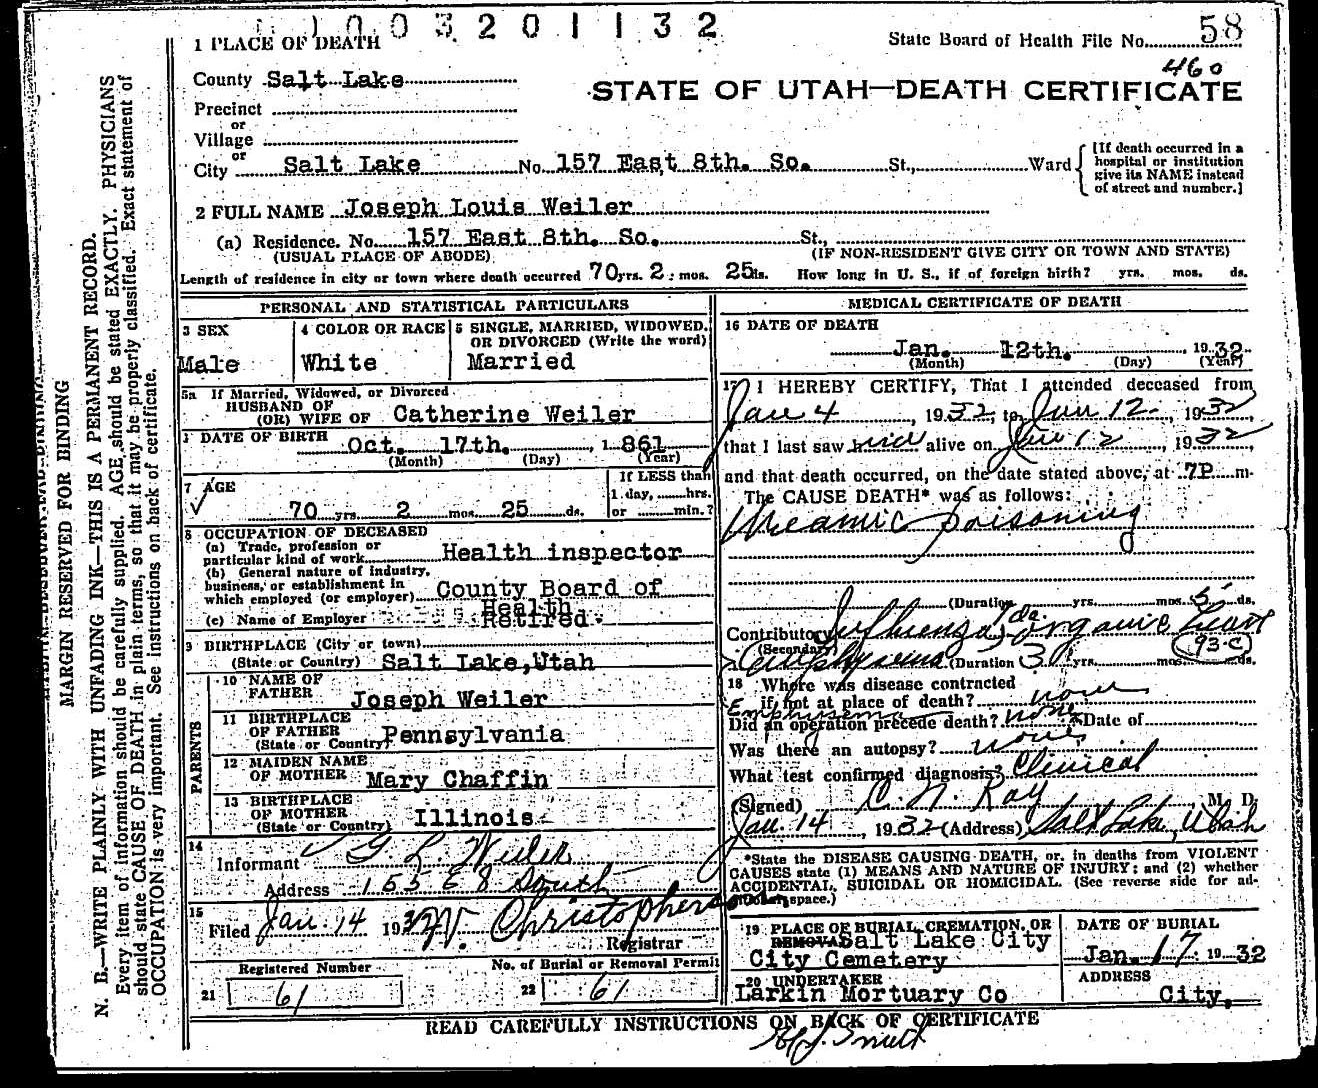 1003201132
State Board of Health File No. 58
460
STATE OF UTAH—DEATH CERTIFICATE
1 PLACE OF DEATH
County Salt Lake
Precinct
or
Village
or
City Salt Lake No. 157 East 8th. So. St., Ward
[If death occurred in a
hospital or institution
give its NAME instead
of street and number.]
2 FULL NAME Joseph Louis Weiler
(a) Residence. No. 157 East 8th. So. St.,
(USUAL PLACE OF ABODE) (IF NON-RESIDENT GIVE CITY OR TOWN AND STATE)
Length of residence in city or town where death occurred 70 yrs. 2 mos. 25 ds. How long in U. S., if of foreign birth? yrs. mos. ds.
PERSONAL AND STATISTICAL PARTICULARS
3 SEX
Male
4 COLOR OR RACE
White
5 SINGLE, MARRIED, WIDOWED,
OR DIVORCED (Write the word)
Married
5a If Married, Widowed, or Divorced
HUSBAND OF
(OR) WIFE OF Catherine Weiler
DATE OF BIRTH
Oct. 17th. 1861
(Month) (Day) (Year)
7 AGE
70 yrs. 2 mos. 25 ds.
If LESS than
1 day, hrs.
or min.?
8 OCCUPATION OF DECEASED
(a) Trade, profession or
particular kind of work Health inspector
(b) General nature of industry,
business, or establishment in
which employed (or employer) County Board of
Health
(c) Name of Employer Retired
9 BIRTHPLACE (City or town)
(State or Country) Salt Lake, Utah
PARENTS
10 NAME OF
FATHER Joseph Weiler
11 BIRTHPLACE
OF FATHER
(State or Country) Pennsylvania
12 MAIDEN NAME
OF MOTHER Mary Chaffin
13 BIRTHPLACE
OF MOTHER
(State or Country) Illinois
14
Informant G. L. Weiler
Address 155 E 8 South
15
Filed Jan. 14 1932 W. Christopherson
Registrar
Registered Number
21 61
No. of Burial or Removal Permit
22 61
MEDICAL CERTIFICATE OF DEATH
16 DATE OF DEATH
Jan. 12th. 1932
(Month) (Day) (Year)
17 I HEREBY CERTIFY, That I attended deceased from
Jan 4, 1932, to Jan 12, 1932,
that I last saw him alive on Jan 12, 1932
and that death occurred, on the date stated above, at 7P m.
The CAUSE DEATH* was as follows:
Uraemic poisoning
(Duration yrs. mos. 5 ds.
Contributory Influenza organic heart
(Secondary)
(Duration 3 yrs. mos. ds.
93-C
18 Where was disease contracted
if not at place of death?
Emphysema
Did an operation precede death? none Date of
Was there an autopsy? none
What test confirmed diagnosis? Clinical
(Signed) C. N. Ray, M. D.
Jan. 14, 1932 (Address) Salt Lake, Utah
*State the DISEASE CAUSING DEATH, or, in deaths from VIOLENT
CAUSES state (1) MEANS AND NATURE OF INJURY; and (2) whether
ACCIDENTAL, SUICIDAL OR HOMICIDAL. (See reverse side for ad-
ditional space.)
19 PLACE OF BURIAL, CREMATION, OR
REMOVAL Salt Lake City
City Cemetery
DATE OF BURIAL
Jan. 17 1932
20 UNDERTAKER
Larkin Mortuary Co
ADDRESS
City,
READ CAREFULLY INSTRUCTIONS ON BACK OF CERTIFICATE
MARGIN RESERVED FOR BINDING
N. B.—WRITE PLAINLY WITH UNFADING INK—THIS IS A PERMANENT RECORD.
Every item of information should be carefully supplied. AGE should be stated EXACTLY. PHYSICIANS
should state CAUSE OF DEATH in plain terms, so that it may be properly classified. Exact statement of
OCCUPATION is very important. See instructions on back of certificate.